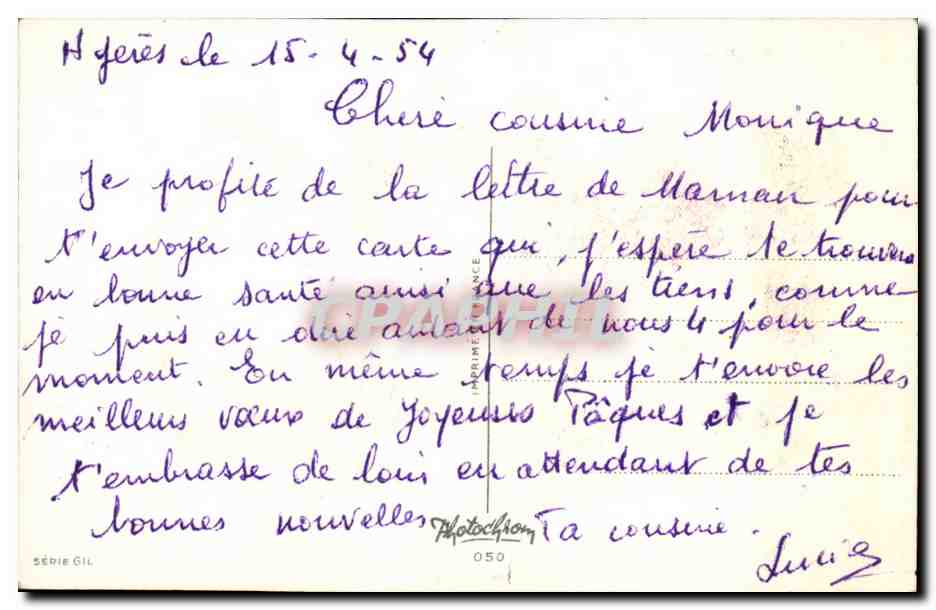 Hyères le 15-4-54
Chère cousine Monique
Je profite de la lettre de Maman pour
t'envoyer cette carte qui, j'espère te trouvera
en bonne santé ainsi que les tiens, comme
je puis en dire autant de nous 4 pour le
moment. En même temps je t'envoie les
meilleurs vœux de Joyeuses Pâques et je
t'embrasse de loin en attendant de tes
bonnes nouvelles Ta cousine.
Lucie
IMPRIMÉ EN FRANCE
Photochrom
050
SÉRIE GIL
CPAPHIL